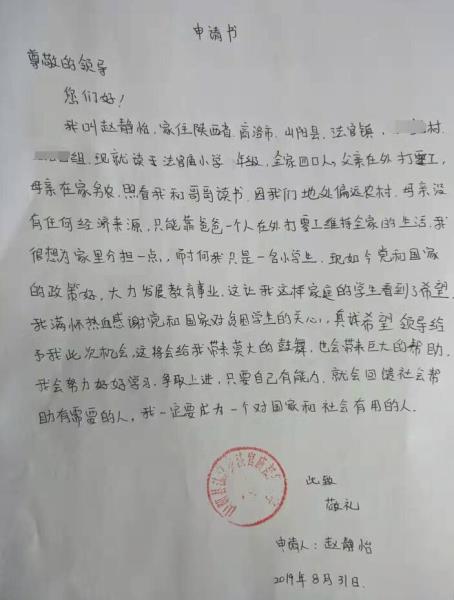 申请书
尊敬的领导
您们好!
我叫赵静怡,家住陕西省,商洛市,山阳县,法官镇, 村
组.现就读于法官庙小学 年级,全家四口人,父亲在外打零工,
母亲在家务农,照看我和哥哥读书.因我们地处偏远农村.母亲没
有任何经济来源,只能靠爸爸一个人在外打零工维持全家的生活.我
很想为家里分担一点,可我只是一名小学生.现如今党和国家
的政策好,大力发展教育事业,这让我这样家庭的学生看到了希望.
我满怀热血感谢党和国家对贫困学生的关心,真诚希望领导给
予我此次机会,这将会给我带来莫大的鼓舞,也会带来巨大的帮助.
我会努力好好学习,争取上进,只要自己有能力,就会回馈社会帮
助有需要的人,我一定要成为一个对国家和社会有用的人.
此致
敬礼
申请人:赵静怡
2019年8月31日.